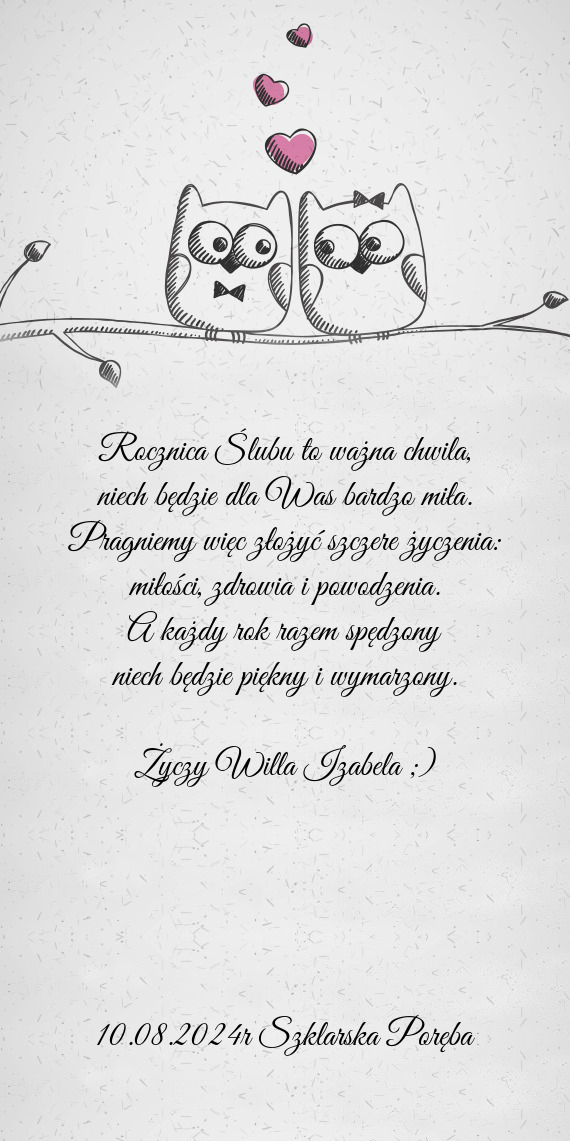 Rocznica Ślubu to ważna chwila,
niech będzie dla Was bardzo miła.
Pragniemy więc złożyć szczere życzenia:
miłości, zdrowia i powodzenia.
A każdy rok razem spędzony
niech będzie piękny i wymarzony.
Życzy Willa Izabela ;)
10.08.2024r Szklarska Poręba